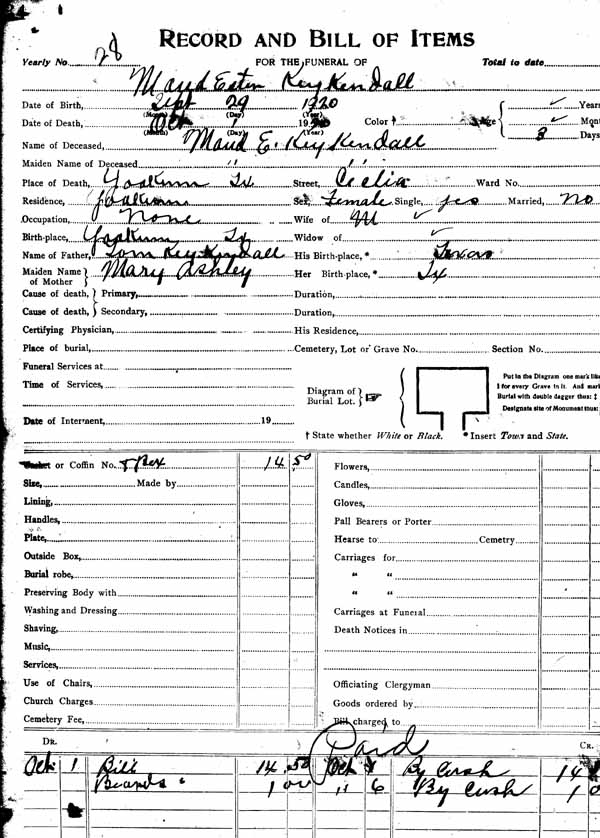 RECORD AND BILL OF ITEMS
Yearly No. 28 FOR THE FUNERAL OF Total to date
Maud Ester KeyKendall
Date of Birth, Sept 29 1920 Years
(Month) (Day) (Year)
Date of Death, Oct 1 19 Color † Age Mont
(Month) (Day) (Year) 3 Days
Name of Deceased, Maud E. KeyKendall
Maiden Name of Deceased " "
Place of Death, Yoakum Tx Street, Cecelia Ward No.
Residence, Yoakum Sex Female Single, yes Married, No
Occupation, None Wife of
Birth-place, Yoakum Tx Widow of
Name of Father, Tom KeyKendall His Birth-place, * Texas
Maiden Name of Mother Mary Ashley Her Birth-place, * Tx
Cause of death, } Primary, Duration,
Cause of death, } Secondary, Duration,
Certifying Physician, His Residence,
Place of burial, Cemetery, Lot or Grave No. Section No.
Funeral Services at
Time of Services,
Date of Interment, 19
Diagram of Burial Lot.
Put in the Diagram one mark like
1 for every Grave in it. And mark
Burial with double dagger thus: ‡
Designate site of Monument thus:
† State whether White or Black. * Insert Town and State.
Casket or Coffin No. & Box 14 50 Flowers,
Size, Made by Candles,
Lining, Gloves,
Handles, Pall Bearers or Porter
Plate, Hearse to Cemetry
Outside Box, Carriages for
Burial robe, " "
Preserving Body with " "
Washing and Dressing Carriages at Funeral
Shaving, Death Notices in
Music,
Services,
Use of Chairs, Officiating Clergyman
Church Charges Goods ordered by
Cemetery Fee, Bill charged to
Paid
DR. CR.
Oct 1 Bill 14.50 Oct By Cash 14
1 00 " 6 By Cash 1 0